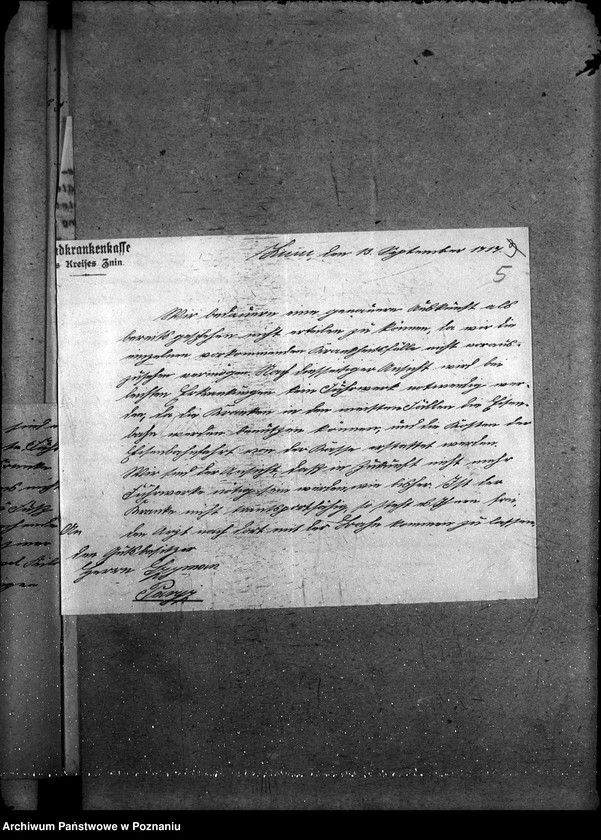 dkrankenkasse
s Kreises Znin.
Znin, den 13. September 1917.
5
Wir bedauern eine genauere Auskunft als
bereits geschehen nicht erteilen zu können, da wir die
einzelnen vorkommenden Krankheitsfälle nicht voraus-
zusehen vermögen. Nach diesseitiger Ansicht wird bei
leichten Erkrankungen kein Fuhrwerk notwendig wer-
den, da die Kranken in den meisten Fällen die Eisen-
bahn werden benützen können, und die Kosten der
Eisenbahnfahrt von der Kasse erstattet werden.
Wir sind der Ansicht, daß in Zukunft nicht mehr
Fuhrwerke nötig sein werden, wie bisher. Ist der
Kranke nicht transportfähig, so steht es Ihnen frei,
den Arzt nach dort mit der Bahn kommen zu lassen.
An
den Gutsbesitzer
Herrn